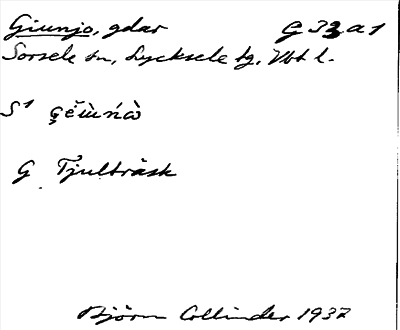 Giunjo, gdar G 33 a 1
Sorsele sn, Lycksele tg, Vbt l.
S¹ ģĕ̀ùńcὼ
G Tjulträsk
Björn Collinder 1937